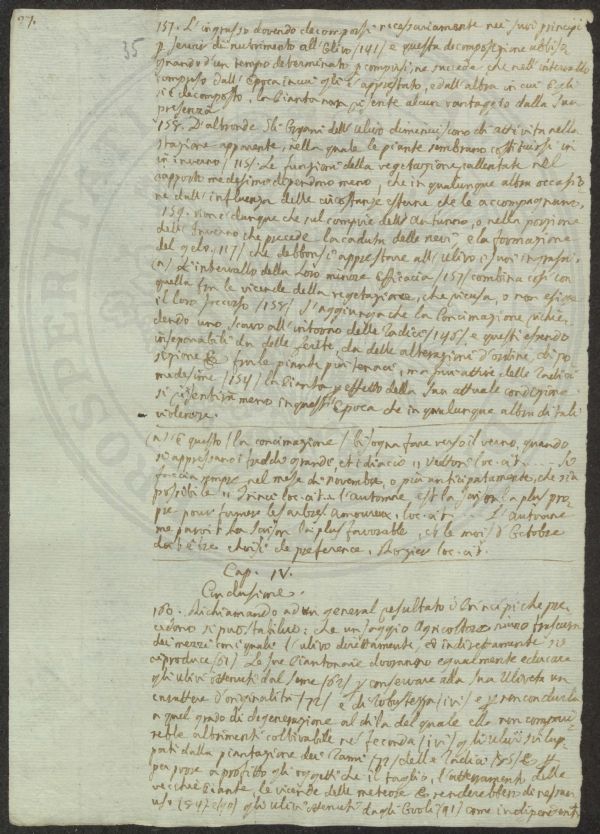 27.
35
157. L'ingrasso dovendo decomporsi necessariamente nei suoi principj
p servire di nutrimento all'Ulivo /141/ e questa decomposizione abbiso
gnando d'un tempo determinato p compirsi, ne succede, che nell'intervallo
compreso dall'Epoca in cui gli è apprestato, e dall'altra in cui Egli
si è decomposto, la Pianta non risente alcun vantaggio dalla sua
presenza.
158. D'altronde gli Organi dell'ulivo diminuiscono di attività nella
stazione apparente, nella quale le piante sembrano costituirsi in
in inverno /115/. Le funzioni della vegetazione rallentate nel
rapporto medesimo dipendono meno, che in qualunque altra occasio
ne dall'influenza delle circostanze esterne che le accompagnano.
159. Non è dunque che sul compire dell'Autunno, o nella porzione
dell'Inverno che precede la caduta delle nevi, e la formazione
del gelo /117/ che debbonsi apprestare all'ulivo i suoi ingrassi.
(a) L'intervallo della loro minore efficacia /157/ combina così con
quella fra le vicende della vegetazione, che ricusa, o non esige
il loro soccorso /158/ S'aggiunga che la Concimazione richie
dendo uno scavo all'intorno delle Radici /146/ e questi essendo
inseparabili da delle ferite, da delle alterazioni d'ordine, di po
sizione fra le piante più tenaci, ma più attive delle Radici
medesime /154/ la Pianta p effetto della sua attuale condizione
si risentirà meno in quest'Epoca che in qualunque altra di tali
violenze.
(a) E questo /la concimazione/ bisogna fare verso il verno, quando
si appressano i freddi grandi, et i diacci " Vettori loc. cit. .... Si
faccia sempre nel mese di novembre, o più anticipatamente, che sia
possibile " loc. cit. .. l'automne, est la saison la plus pro
pre pour fumer les arbres. Amoureux, loc. cit. L'automne
me paroit la saison la plus favorable, et le mois d'Octobre
doit être choisi de preference. loc. cit.
Cap. IV.
Conclusione.
160. Richiamando ad un general resultato i Principj che pre
cedono si può stabilire: che un saggio Agricoltore
dei mezzi con i quali l'ulivo direttamente, ed indirettamente si
riproduce /61/ Le sue Piantonaie dovranno egualmente educare
gli ulivi ottenuti dal seme /62/ p conservare alla sua Uliveta un
carattere d'originalità /72/ e di robustezza /ivi/ e p non condurla
a quel grado di degenerazione al di là del quale ella non compari
rebbe altrimenti coltivabile nè feconda /ivi/ gli ulivi svilup
pati dalla piantazione dei Rami /72/ delle Radici /85/ e p
per porre a profitto gli oggetti che il taglio, l'atterramento delle
vecchie Piante, le vicende delle meteore renderebbero di nessun
uso (84 7 e /90/ gli ulivi ottenuti dagli Ovoli /91/ come indipendenti